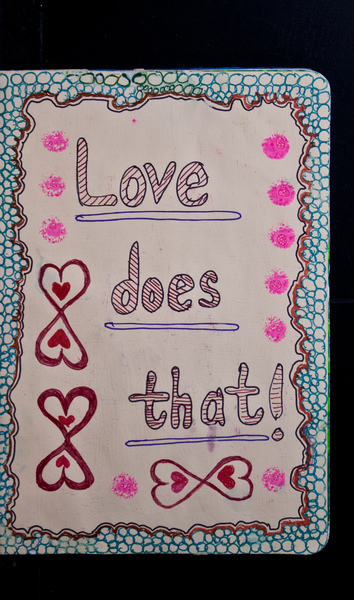 Love
does
that!